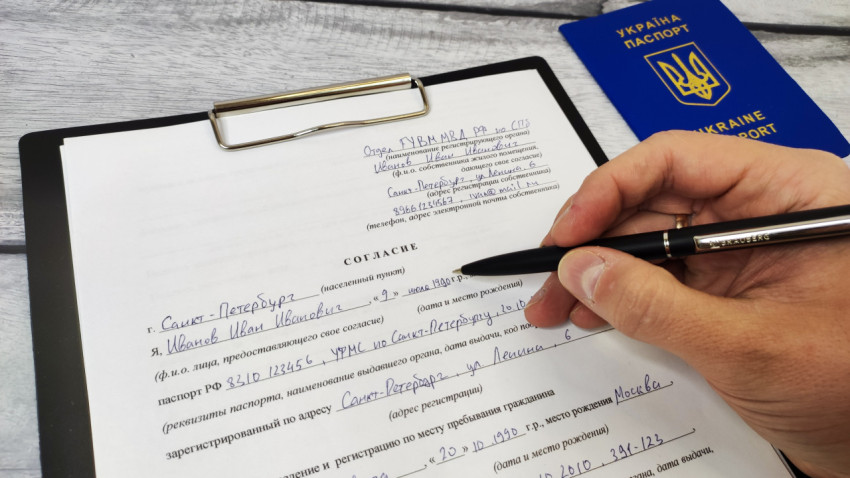 УКРАЇНА
ПАСПОРТ
UKRAINE
PORT
Отдел ГУВМ МВД РФ по СПб
(наименование регистрирующего органа)
Иванов Иван Иванович
(ф.и.о. собственника жилого помещения,
дающего свое согласие)
Санкт-Петербург, ул Ленина 6
(адрес регистрации собственника)
89661234567, ivan@mail.ru
(телефон, адрес электронной почты собственника)
СОГЛАСИЕ
г. Санкт-Петербург
(населенный пункт)
Я, Иванов Иван Иванович, «9» июля 1990 г.р.,
(ф.и.о. лица, предоставляющего свое согласие) (дата и место рождения)
паспорт РФ 8310 123456, УФМС по Санкт-Петербургу, 20.10
(реквизиты паспорта, наименование выдавшего органа, дата выдачи, код
зарегистрированный по адресу Санкт-Петербург, ул Ленина, 6
(адрес регистрации)
и регистрацию по месту пребывания гражданина
«20» 10 1990 г.р., место рождения Москва,
(дата и место рождения)
10 2010, 391-123
органа, дата выдачи,
BRAUBERG